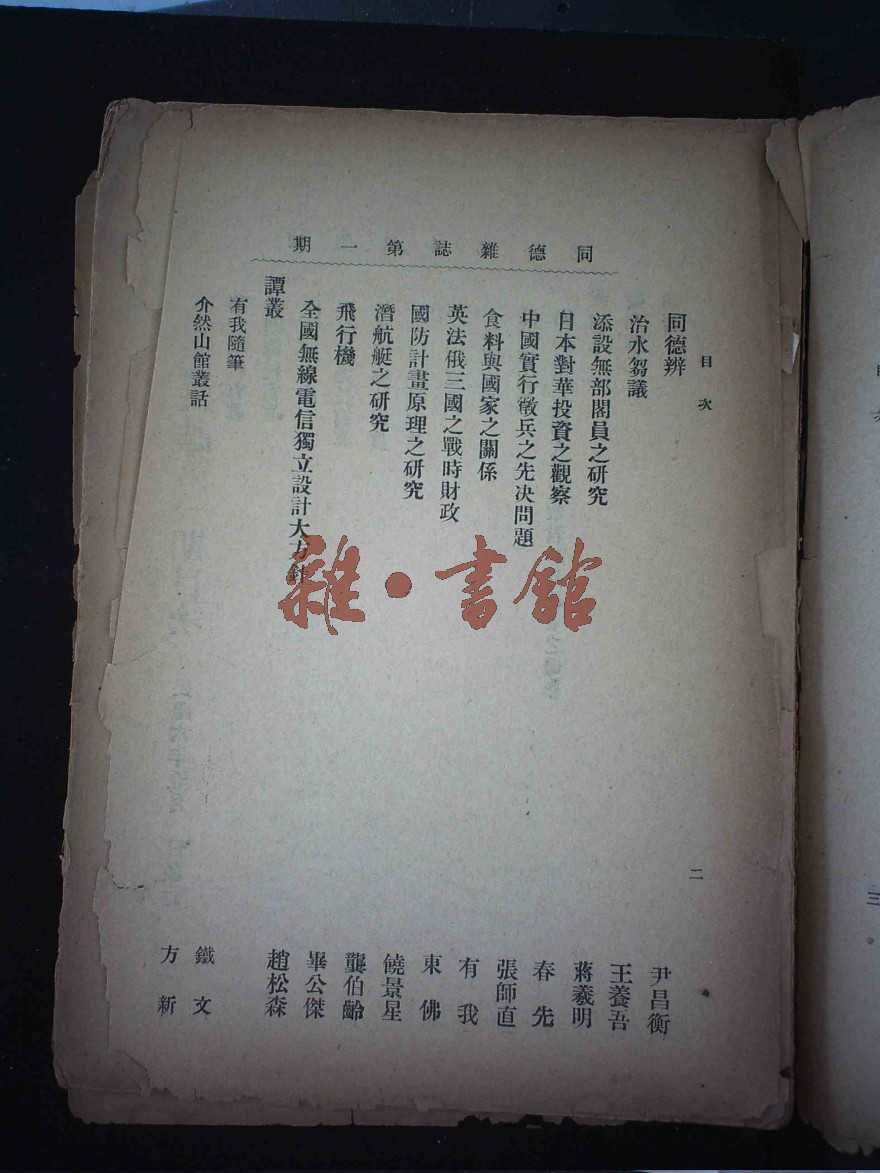 同德雜誌第一期
目次
二
同德辨 尹昌衡
治水芻議 王養吾
添設無部閣員之研究 蔣羲明
日本對華投資之觀察 春先
中國實行徵兵之先决問題 張師直
食料與國家之關係 有我
英法俄三國之戰時財政 東佛
國防計畫原理之研究 饒景星
潛航艇之研究 龔伯齡
飛行機 畢公傑
全國無線電信獨立設計大方針 趙松森
譚叢
有我隨筆 鐵文
介然山館叢話 方新
雜·書館
三